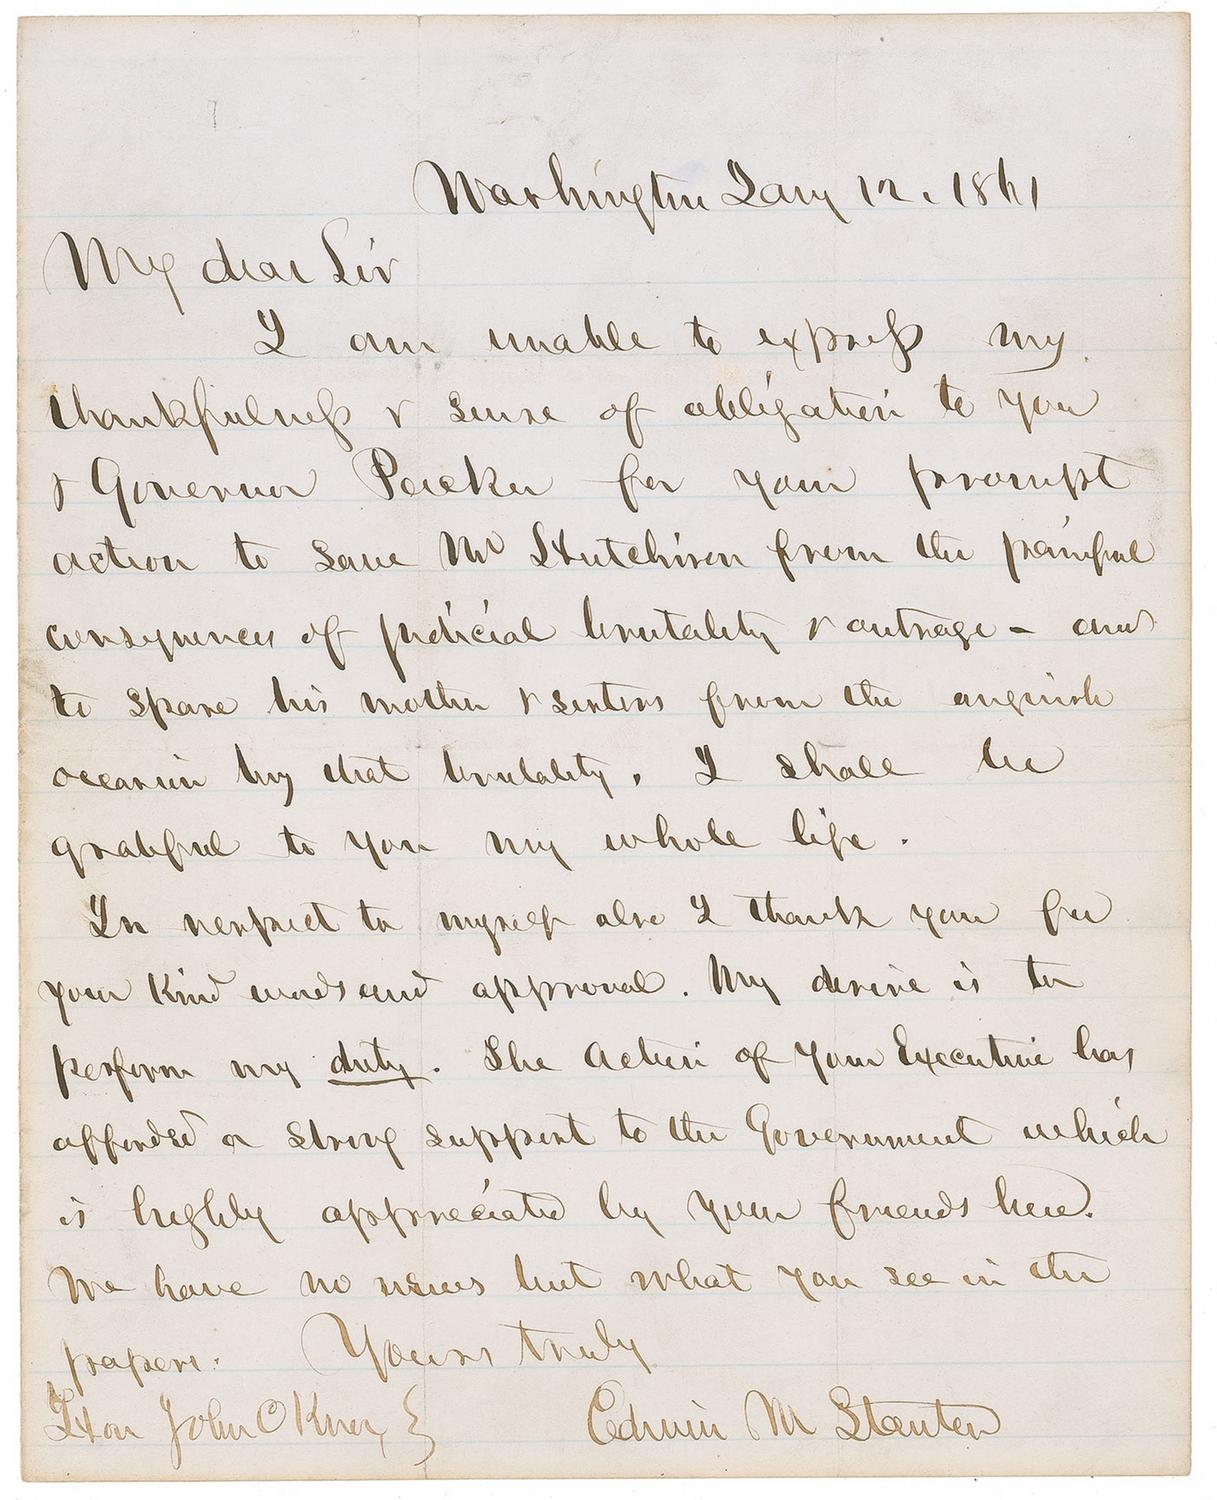 Washington Jany 12. 1861
My dear Sir
I am unable to express my
thankfulness & sense of obligation to you
& Governor Packer for your prompt
action to save Mr Hutchison from the painful
consequences of judicial brutality & outrage - and
to spare his mother & sisters from the anguish
occasion by that brutality. I shall be
grateful to you my whole life.
In respect to myself also I thank you for
your kind words and approval. My desire is to
perform my duty. The action of your Executive has
afforded a strong support to the Government which
is highly appreciated by your friends here.
We have no news but what you see in the
papers. Yours truly
Hon John C Knox } Edwin M Stanton